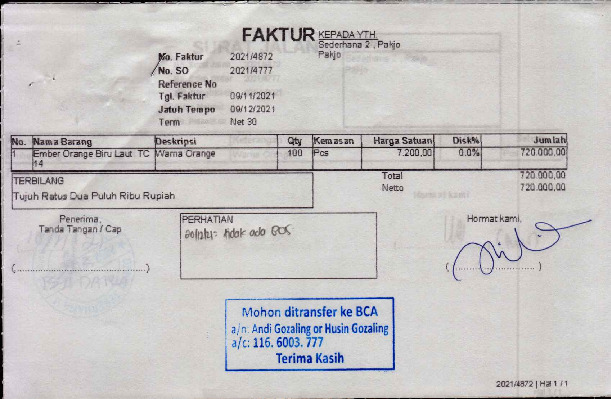 FAKTUR
KEPADA YTH.
Sederhana 2 , Pakjo
Pakjo
No. Faktur 2021/4872
No. SO 2021/4777
Reference No
Tgl. Faktur 09/11/2021
Jatuh Tempo 09/12/2021
Term Net 30
No. Nama Barang Deskripsi Qty Kemasan Harga Satuan Disk% Jumlah
1 Ember Orange Biru Laut TC Warna Orange 100 Pcs 7.200,00 0.0% 720.000,00
14
TERBILANG
Tujuh Ratus Dua Puluh Ribu Rupiah
Total 720.000,00
Netto 720.000,00
Penerima,
Tanda Tangan / Cap
(........................................)
PERHATIAN
ado BOS
Hormat kami,
(........................)
Mohon ditransfer ke BCA
a/n: Andi Gozaling or Husin Gozaling
a/c: 116. 6003. 777
Terima Kasih
2021/4872 | Hal 1 / 1